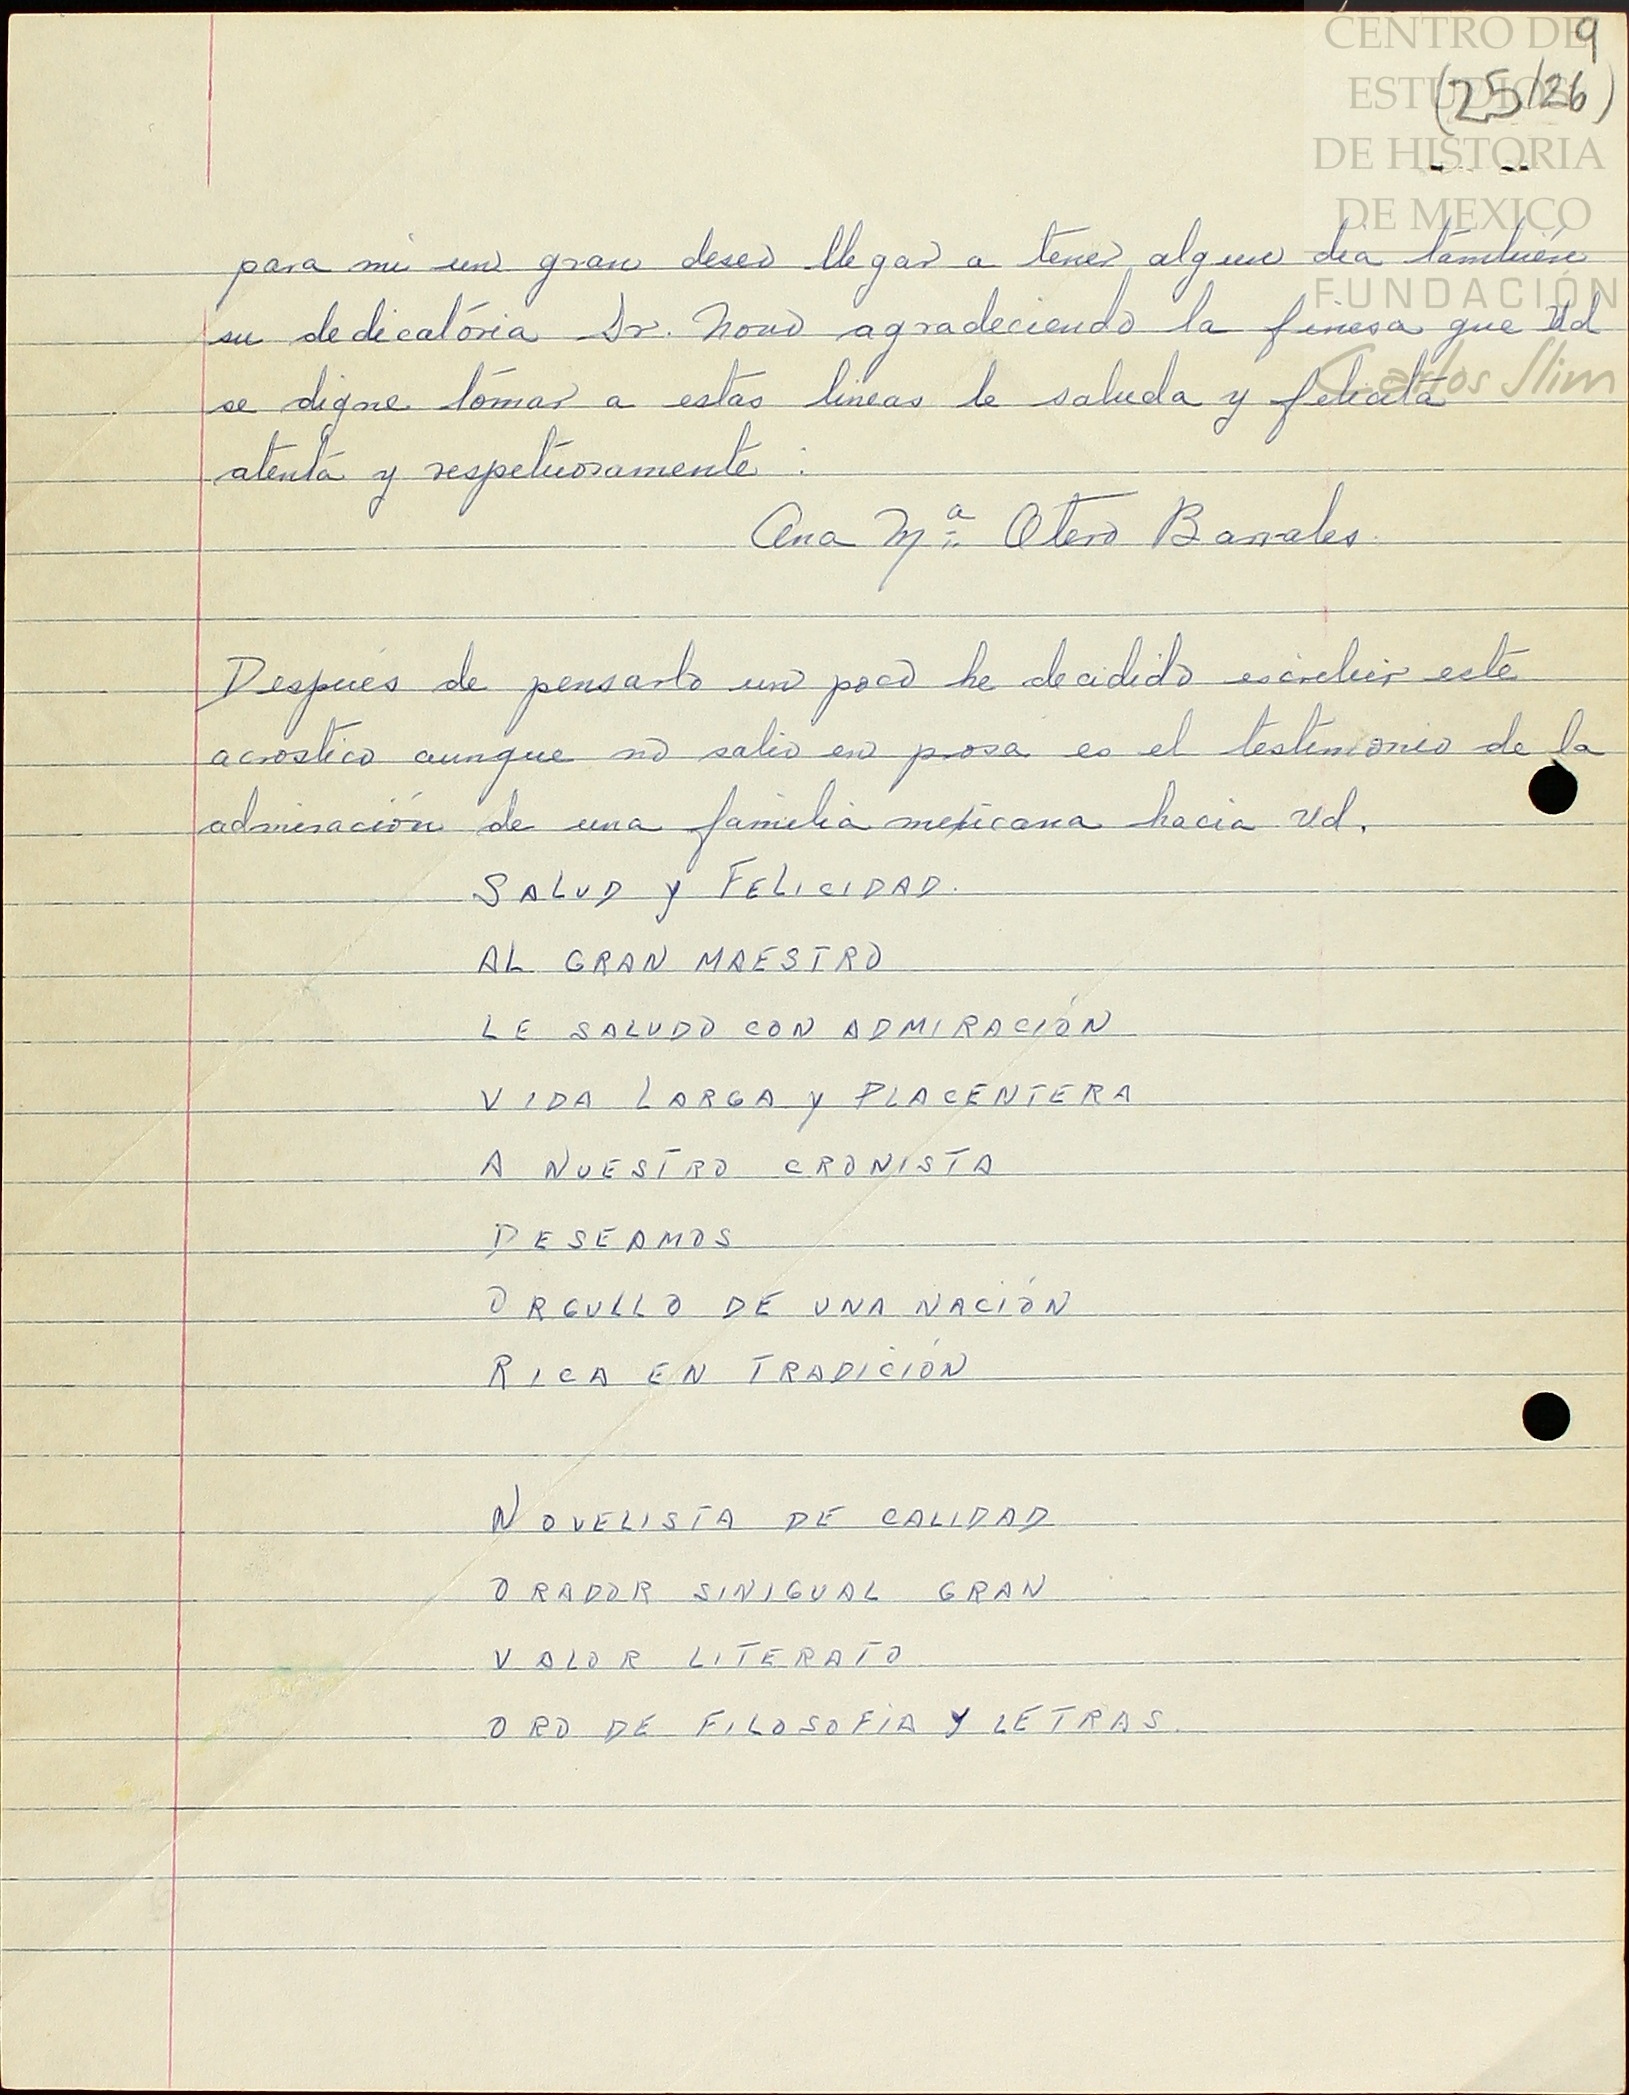 CENTRO DE
ESTUDIOS
DE HISTORIA
DE MEXICO
FUNDACIÓN
Carlos Slim
9
(25/26)
para mi un gran deseo llegar a tener algun dia también
su dedicatória Sr. Novo agradeciendo la finesa que Ud
se digne tómar a estas lineas le saluda y felicita
atenta y respetuosamente :
Ana Mª Otero Barrales.
Después de pensarlo un poco he decidido escribir este
acrostico aunque no salio en prosa es el testimonio de la
admiración de una familia mexicana hacia Ud.
SALUD y FELICIDAD.
AL GRAN MAESTRO
LE SALUDO CON ADMIRACIÓN
VIDA LARGA y PLACENTERA
A NUESTRO CRONISTA
DESEAMOS
ORGULLO DE UNA NACIÓN
RICA EN TRADICIÓN
NOVELISTA DE CALIDAD
ORADOR SINIGUAL GRAN
VALOR LITERATO
ORO DE FILOSOFIA Y LETRAS.